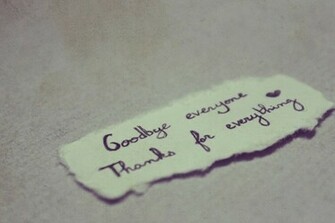 Goodbye everyone
Thanks for everything